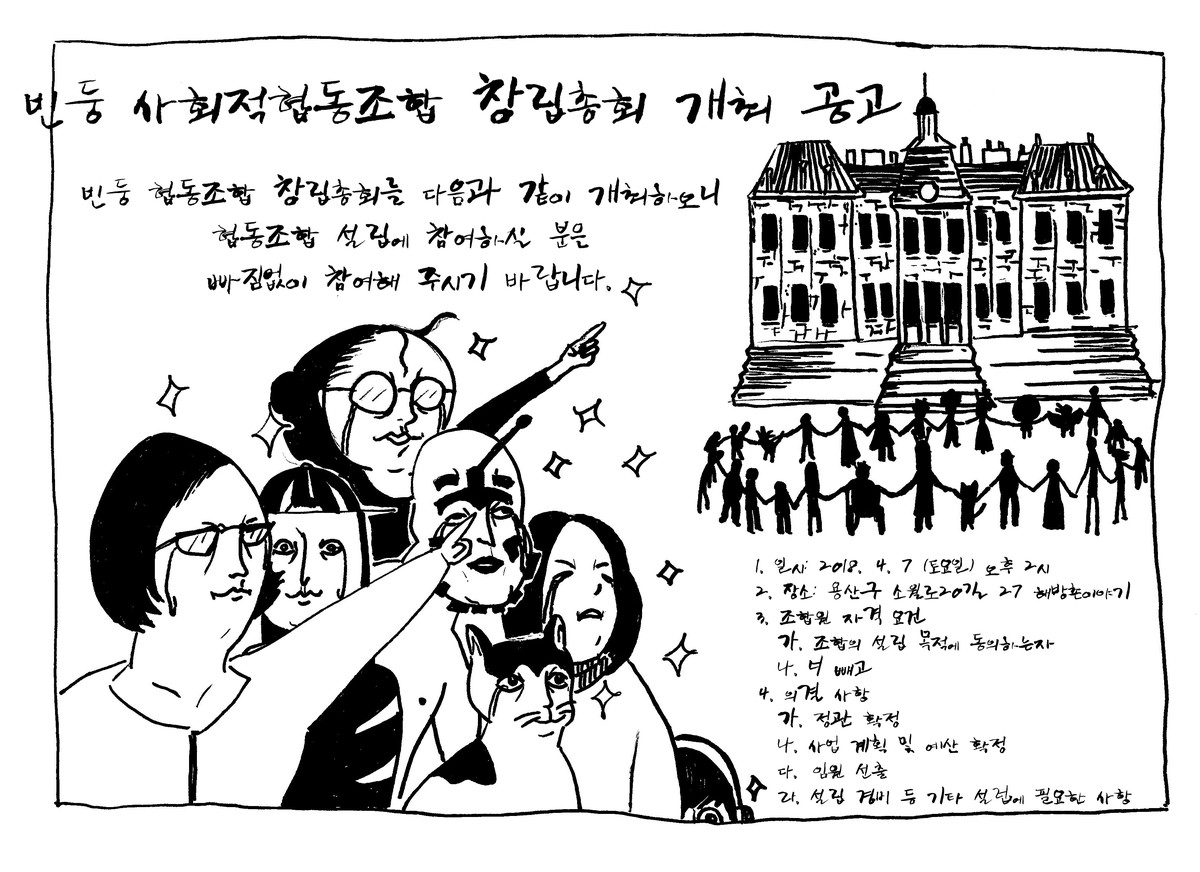 빈둥 사회적협동조합 창립총회 개최 공고
빈둥 협동조합 창립총회를 다음과 같이 개최하오니
협동조합 설립에 참여하실 분은
빠짐없이 참여해 주시기 바랍니다.
1. 일시: 2018. 4. 7 (토요일) 오후 2시
2. 장소: 용산구 소월로20길 27 해방촌이야기
3. 조합원 자격 요건
가. 조합의 설립 목적에 동의하는자
나. 너 빼고
4. 의결 사항
가. 정관 확정
나. 사업 계획 및 예산 확정
다. 임원 선출
라. 설립 경비 등 기타 설립에 필요한 사항